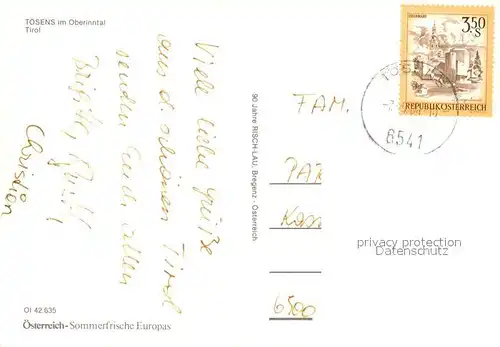 TÖSENS im Oberinntal
Tirol
Viele liebe Grüße
aus d. schönen Tirol
senden Euch allen
Brigitte,
Christian
OI 42.635
Österreich-Sommerfrische Europas
90 Jahre RISCH-LAU, Bregenz - Österreich
3.50
S
REPUBLIK ÖSTERREICH
TÖSENS
6541
FAM.
6500
privacy protection
Datenschutz